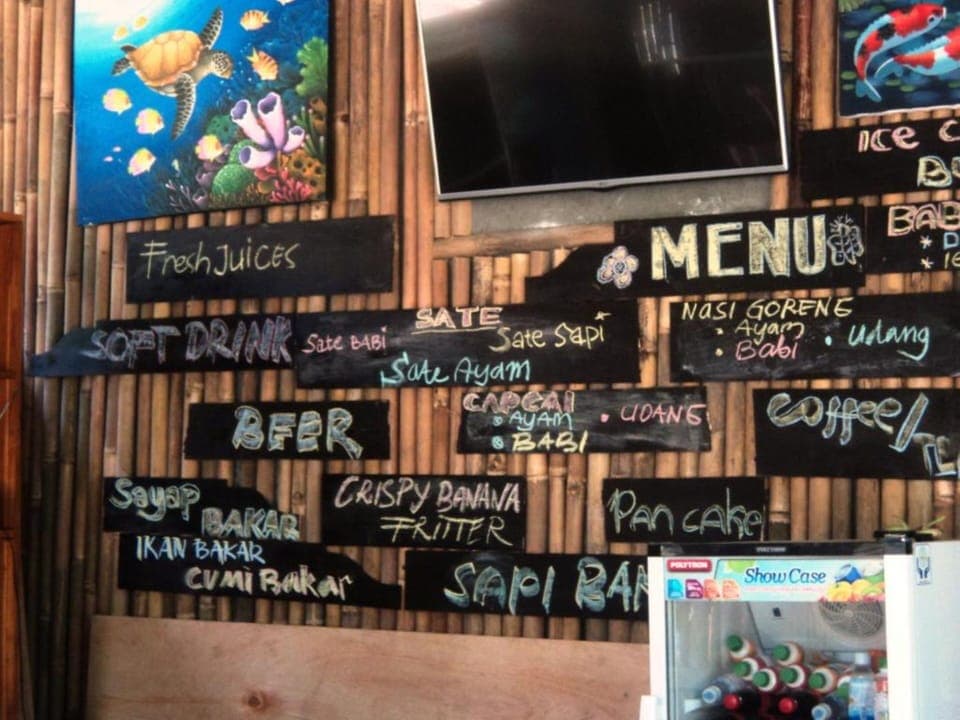 ICE
MENU
Fresh Juices
SOFT DRINK
SATE
Sate BABI
Sate Sapi
Sate Ayam
NASI GORENG
• Ayam
• Babi
• Udang
BEER
CAPCAI
• AYAM
• BABI
• UDANG
Coffee/
Sayap
BAKAR
CRISPY BANANA
FRITTER
Pancake
IKAN BAKAR
CUMi Bakar
SAPI
POLYTRON
Show Case